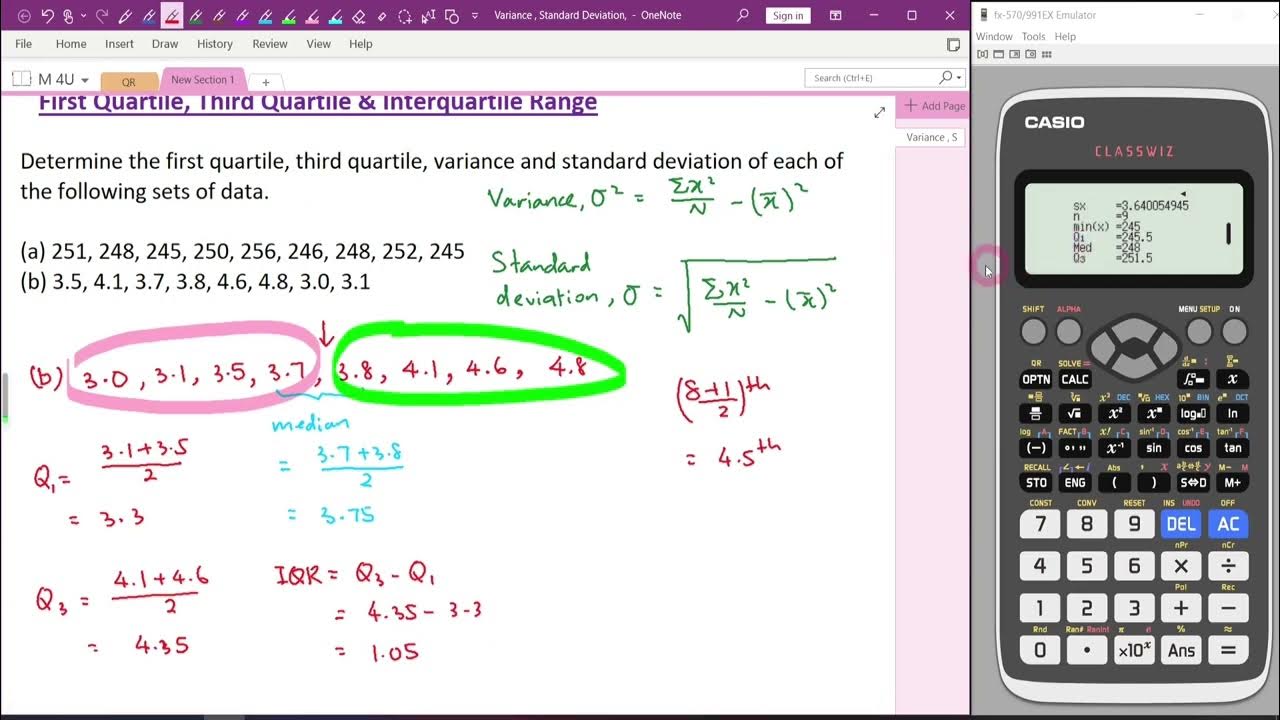 Variance , Standard Deviation, - OneNote
Sign in
File Home Insert Draw History Review View Help
M 4U
QR
New Section 1
+
Search (Ctrl+E)
Add Page
Variance , S
First Quartile, Third Quartile & Interquartile Range
Determine the first quartile, third quartile, variance and standard deviation of each of
the following sets of data.
(a) 251, 248, 245, 250, 256, 246, 248, 252, 245
(b) 3.5, 4.1, 3.7, 3.8, 4.6, 4.8, 3.0, 3.1
Variance, σ² = Σx²/N - (x̄)²
Standard
deviation, σ = √(Σx²/N - (x̄)²)
(b) 3.0, 3.1, 3.5, 3.7, 3.8, 4.1, 4.6, 4.8
(8+1/2)th
= 4.5th
median
= 3.7+3.8/2
= 3.75
Q₁ = 3.1+3.5/2
= 3.3
Q₃ = 4.1+4.6/2
= 4.35
IQR = Q₃ - Q₁
= 4.35 - 3.3
= 1.05
fx-570/991EX Emulator
Window Tools Help
CASIO
CLASSWIZ
sx =3.640054945
n =9
min(x) =245
Q₁ =245.5
Med =248
Q₃ =251.5
SHIFT ALPHA MENU SETUP ON
QR SOLVE =
OPTN CALC x
x³ DEC HEX 10ˣ BIN eˣ OCT
√ x² xⁿ log ln
log FACT B x! C sin⁻¹ D cos⁻¹ E tan⁻¹ F
(−) x⁻¹ sin cos tan
RECALL Abs M− M
STO ENG ( ) S⇔D M+
CONST CONV RESET INS UNDO OFF
7 8 9 DEL AC
nPr nCr
4 5 6 × ÷
Pol Rec
1 2 3 + −
Rnd Ran# RanInt π e % ≈
0 • ×10ˣ Ans =